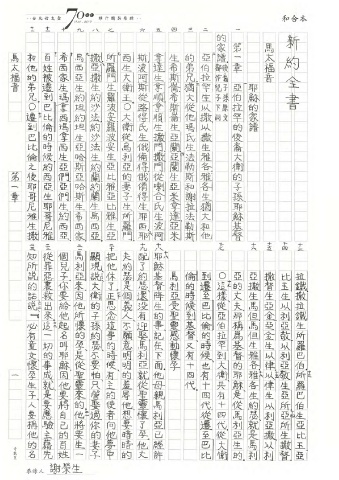 和合本
新約全書
馬太福音
第一章
耶穌的家譜
亞伯拉罕的後裔大衛的子孫耶穌基督
的家譜
亞伯拉罕生以撒以撒生雅各雅各生猶大和他
的弟兄猶大從他瑪氏生法勒斯和謝拉法勒斯
生希斯崙希斯崙生亞蘭亞蘭生亞米拿達亞米
拿達生拿順拿順生撒門撒門從喇合氏生波阿
斯波阿斯從路得氏生俄備得俄備得生耶西耶
西生大衛王〇大衛從烏利亞的妻子生所羅門
所羅門生羅波安羅波安生亞比雅亞比雅生亞
撒亞撒生約沙法約沙法生約蘭約蘭生烏西亞
烏西亞生約坦約坦生亞哈斯亞哈斯生希西家
希西家生瑪拿西瑪拿西生亞們亞們生約西亞
百姓被遷到巴比倫的時候約西亞生耶哥尼雅
和他的弟兄〇遷到巴比倫之後耶哥尼雅生撒
拉鐵撒拉鐵生所羅巴伯所羅巴伯生亞比玉亞
比玉生以利亞敬以利亞敬生亞所亞所生撒督
撒督生亞金亞金生以律以律生以利亞撒以利
亞撒生馬但馬但生雅各雅各生約瑟就是馬利
亞的丈夫那稱為基督的耶穌是從馬利亞生的
〇這樣從亞伯拉罕到大衛共有十四代從大衛
到遷至巴比倫的時候也有十四代從遷至巴比
倫的時候到基督又有十四代
馬利亞受聖靈感動懷孕
耶穌基督降生的事記在下面他母親馬利亞已經許
配了約瑟還沒有迎娶馬利亞就從聖靈懷了孕他丈
夫約瑟是個義人不願意明明的羞辱他想要暗暗的
把他休了正思念這事的時候有主的使者向他夢中
顯現說大衛的子孫約瑟不要怕只管娶過你的妻子
馬利亞來因他所懷的孕是從聖靈來的他將要生一
個兒子你要給他起名叫耶穌因他要將自己的百姓
從罪惡裏救出來這一切的事成就是要應驗主藉先
知所說的話說必有童女懷孕生子人要稱他的名
馬太福音
第一章
一